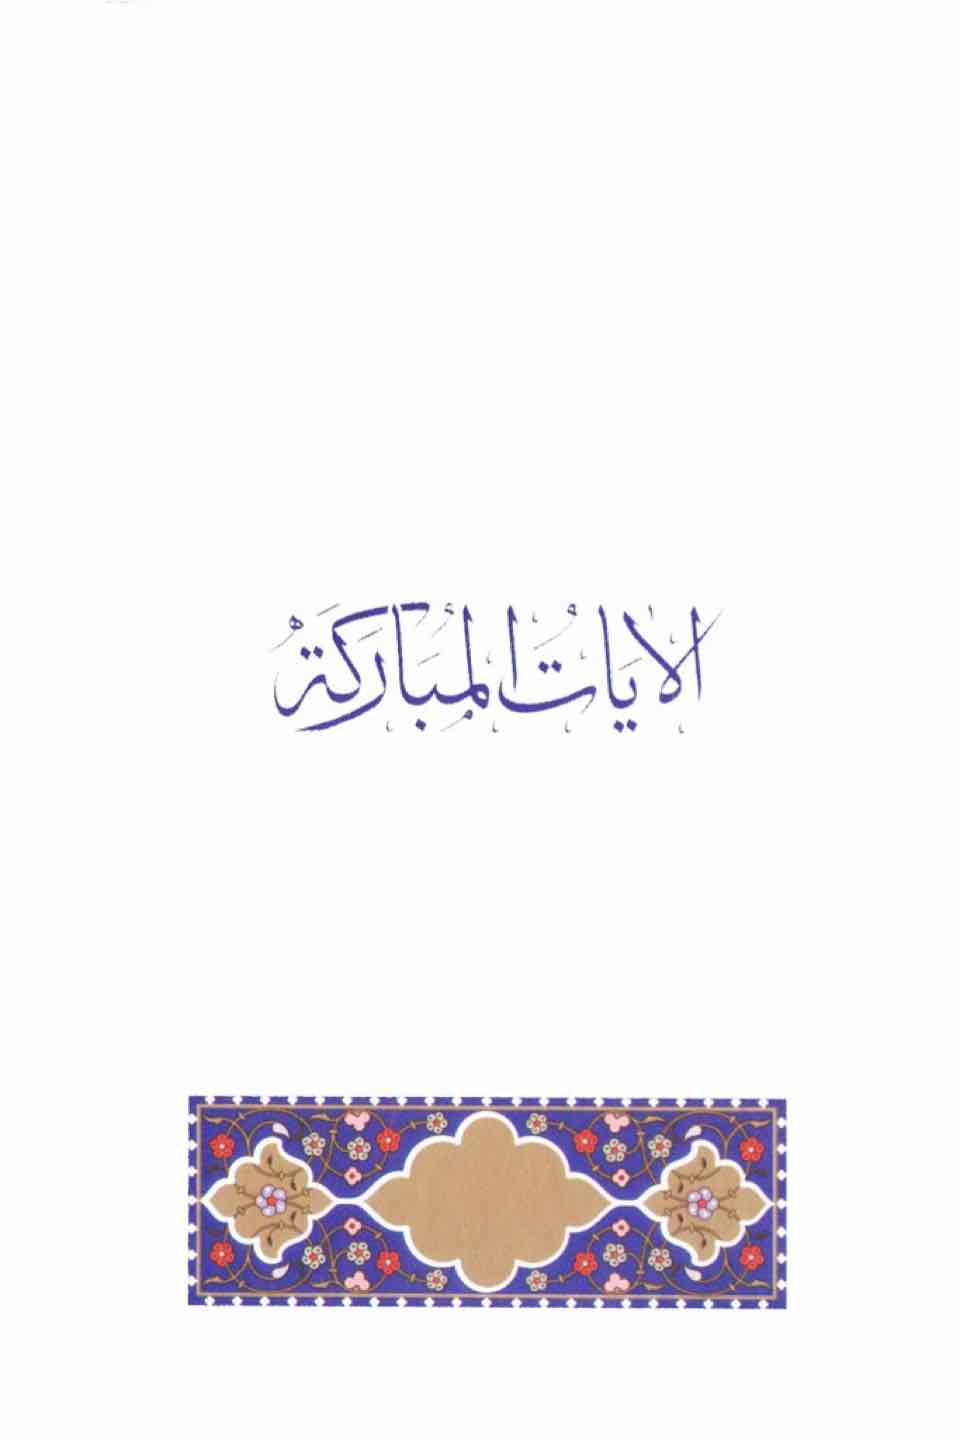 الآيَاتُ المُبَارَكَةُ